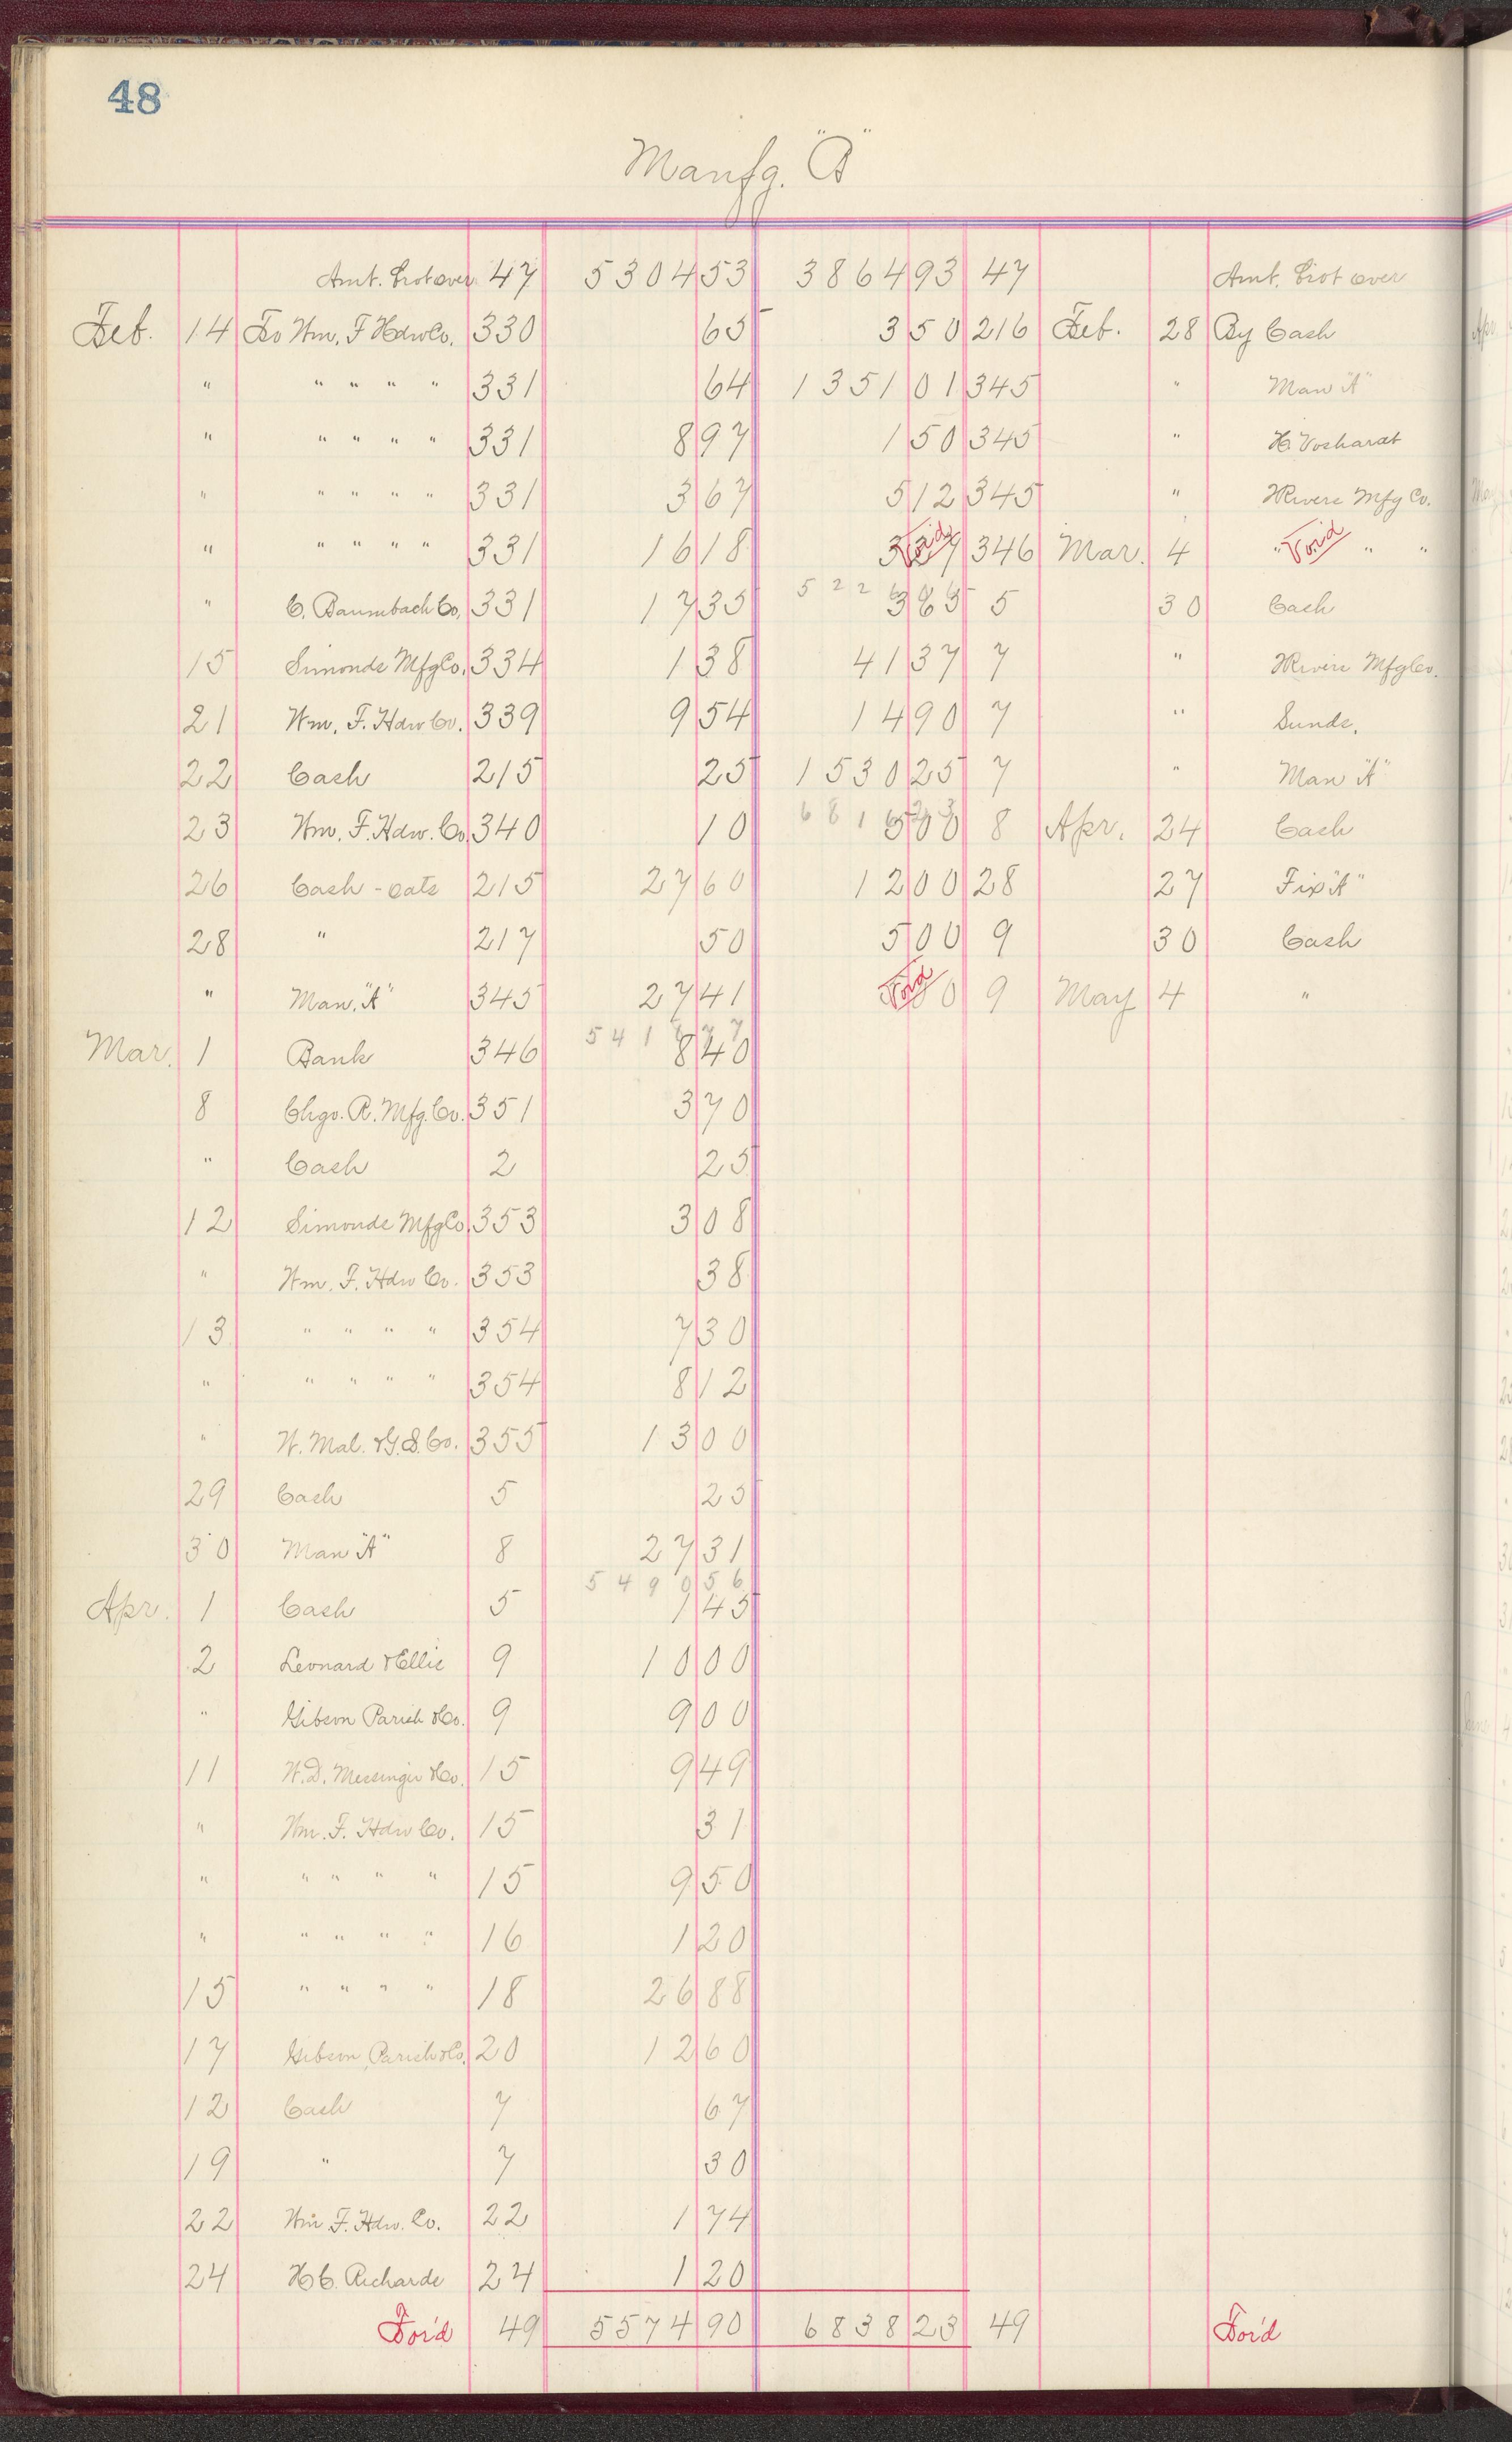 48
Manfg. "A"
Amt. brot over 47 5304 53 3864 93 47 Amt. brot over
Feb. 14 To Wm. F Hdw Co. 330 65 3 50 216 Feb. 28 By Cash
" " " " " 331 64 1351 01 345 " Man "A"
" " " " " 331 8 97 1 50 345 " H. Voshardt
" " " " " 331 3 67 5 12 345 " Revere Mfg Co.
" " " " " 331 16 18 3 37 Void 346 Mar. 4 " Void " "
" C. Baumbach Co. 331 17 35 5226 3 65 5 30 Cash
15 Simonds Mfg Co. 334 1 38 41 37 7 " Revere Mfg Co.
21 Wm. F. Hdw Co. 339 9 54 14 90 7 " Sunds.
22 Cash 215 25 1530 25 7 " Man "A"
23 Wm. F. Hdw. Co. 340 10 6816 23 5 00 8 Apr. 24 Cash
26 Cash - oats 215 27 60 12 00 28 27 Fix "A"
28 " 217 50 5 00 9 30 Cash
" Man. "A" 345 27 41 Void 0 9 May 4 "
Mar. 1 Bank 346 5418 77 8 40
8 Chgo. R. Mfg. Co. 351 3 70
" Cash 2 25
12 Simonds Mfg Co. 353 3 08
" Wm. F. Hdw Co. 353 38
13 " " " " 354 7 30
" " " " " 354 8 12
" W. Mal. & G. S. Co. 355 13 00
29 Cash 5 25
30 Man "A" 8 27 31
Apr. 1 Cash 5 5490 56 1 45
2 Leonard & Ellis 9 10 00
" Gibson Parish & Co. 9 9 00
11 W. D. Messinger & Co. 15 9 49
" Wm. F. Hdw Co. 15 31
" " " " " 15 9 50
" " " " " 16 1 20
15 " " " " 18 26 88
17 Gibson, Parish & Co. 20 12 60
12 Cash 7 67
19 " 7 30
22 Wm F. Hdw. Co. 22 1 74
24 H. C. Richards 24 1 20
For'd 49 5574 90 6838 23 49 For'd